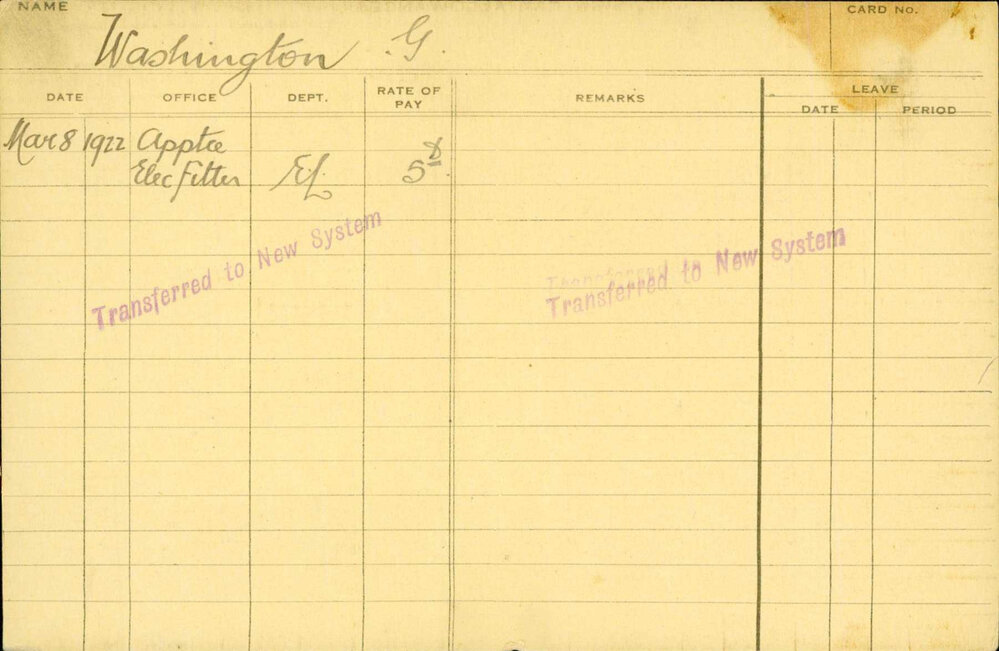 NAME
CARD No.
Washington G.
DATE OFFICE DEPT. RATE OF PAY REMARKS LEAVE
DATE PERIOD
Mar 8 1922 Apptce
Elec Fitter EL. 5 d
Transferred to New System
Transferred to
Transferred to New System